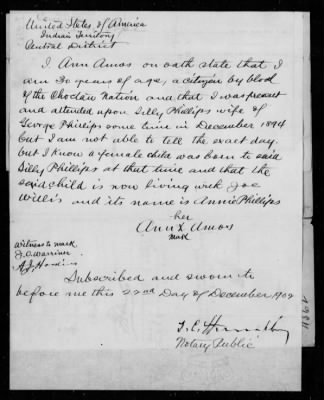 United States of America
Indian Territory
Central District
I, Ann Amos on oath state that I
am 30 years of age, a citizen by blood
of the Choctaw Nation and that I was present
and attended upon Silly Phillips wife of
George Phillips some time in December 1894
but I am not able to tell the exact day.
but I know a female child was born to said
Silly Phillips at that time and that the
said child is now living with Joe
Willis and its name is Annie Phillips
her
Ann X Amos
mark
Witness to mark
Subscribed and sworn to
before me this 22nd Day of December 1902
Notary Public